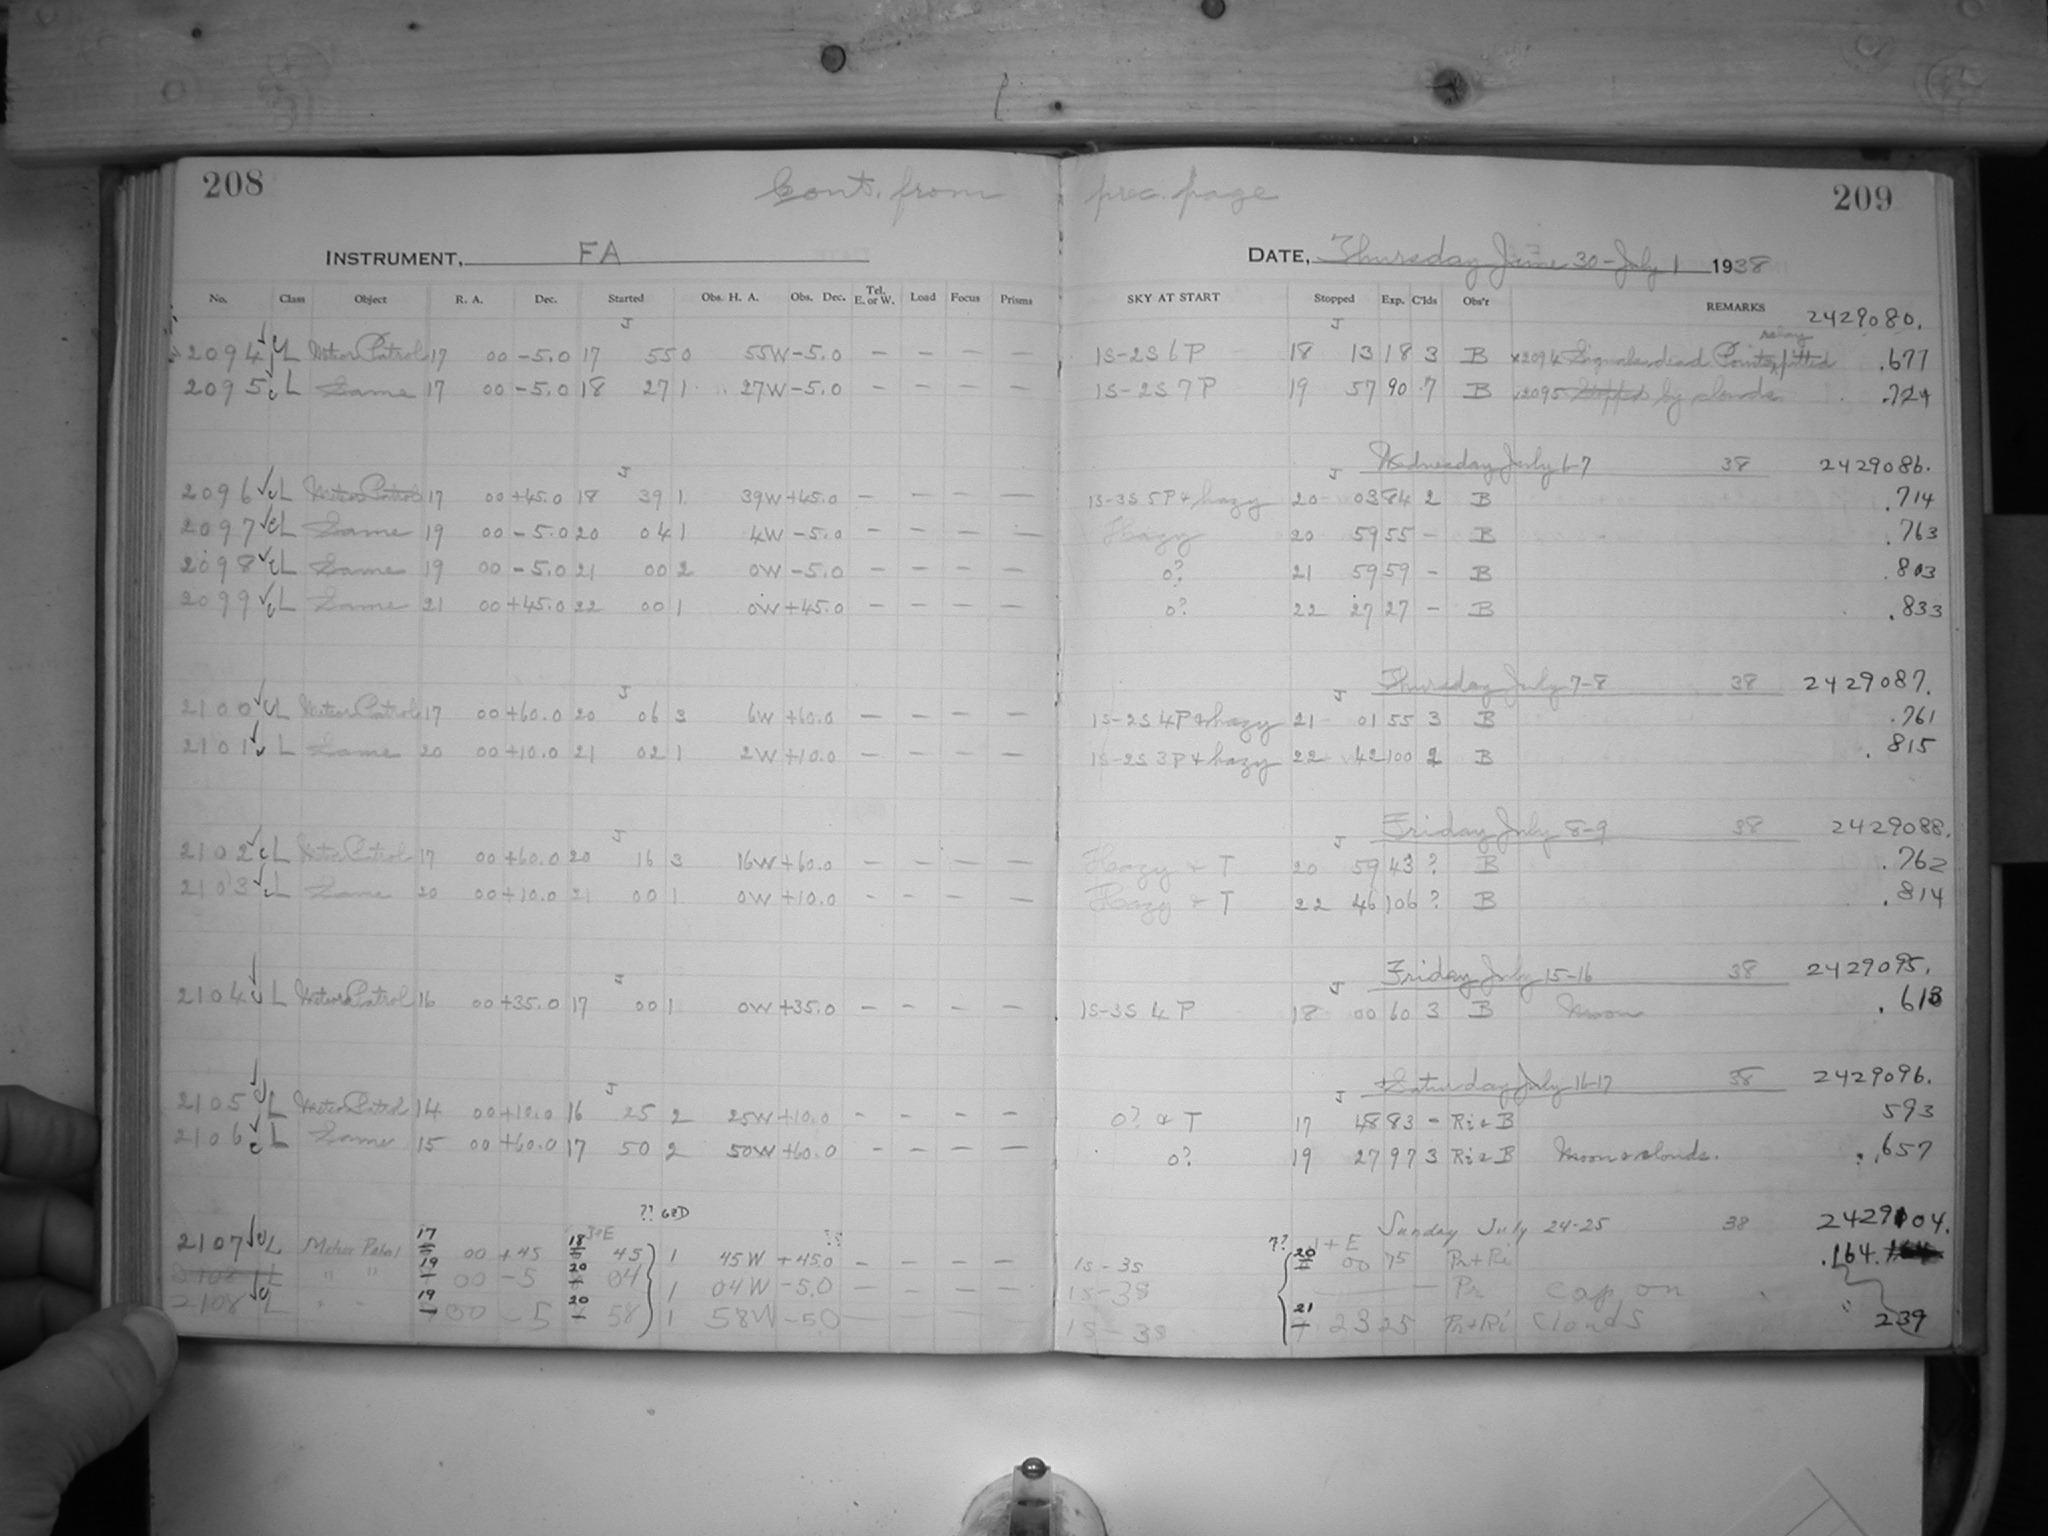 208 Cont. from prec. page 209
INSTRUMENT, FA DATE, Thursday June 30 - July 1 1938
No. Class Object R. A. Dec. Started Obs. H. A. Obs. Dec. Tel. E. or W. Load Focus Prisms SKY AT START Stopped Exp. C'lds Obs'r REMARKS 2429080.
J J relay
2094 L Meteor Patrol 17 00 -5.0 17 55 0 55W -5.0 - - - - 1S-2S 6P 18 13 18 3 B x2094 Signals dead Points pitted .677
2095 L Same 17 00 -5.0 18 27 1 27W -5.0 - - - - 1S-2S 7P 19 57 90 7 B x2095 Stopped by clouds .724
J J Wednesday July 6-7 38 2429086.
2096 L Meteor Patrol 17 00 +45.0 18 39 1 39W +45.0 - - - - 1S-3S 5P + hazy 20 03 84 2 B .714
2097 L Same 19 00 -5.0 20 04 1 4W -5.0 - - - - Hazy 20 59 55 - B .763
2098 L Same 19 00 -5.0 21 00 2 0W -5.0 - - - - 0? 21 59 59 - B .803
2099 L Same 21 00 +45.0 22 00 1 0W +45.0 - - - - 0? 22 27 27 - B .833
J J Thursday July 7-8 38 2429087.
2100 L Meteor Patrol 17 00 +60.0 20 06 3 6W +60.0 - - - - 1S-2S 4P + hazy 21 01 55 3 B .761
2101 L Same 20 00 +10.0 21 02 1 2W +10.0 - - - - 1S-2S 3P + hazy 22 42 100 2 B .815
J J Friday July 8-9 38 2429088.
2102 L Meteor Patrol 17 00 +60.0 20 16 3 16W +60.0 - - - - Hazy + T 20 59 43 ? B .762
2103 L Same 20 00 +10.0 21 00 1 0W +10.0 - - - - Hazy + T 22 46 106 ? B .814
J J Friday July 15-16 38 2429095.
2104 L Meteor Patrol 16 00 +35.0 17 00 1 0W +35.0 - - - - 1S-3S 4P 18 00 60 3 B Moon .613
J J Saturday July 16-17 38 2429096.
2105 L Meteor Patrol 14 00 +10.0 16 25 2 25W +10.0 - - - - 0? + T 17 48 83 - Ri + B 593
2106 L Same 15 00 +60.0 17 50 2 50W +60.0 - - - - 0? 19 27 97 3 Ri + B Moon + clouds. .657
?? GED ?? J+E Sunday July 24-25 38 2429104.
2107 L Meteor Patrol 17 00 +45 18 45 1 45W +45.0 - - - - 1S-3S 20 00 75 Pr+Ri .164
2108 L " " 19 00 -5 20 04 1 04W -5.0 - - - - 1S-3S Pr cap on
2108 L " " 19 00 -5 20 58 1 58W -5.0 - - - - 1S-3S 21 23 25 Pr+Ri Clouds 239